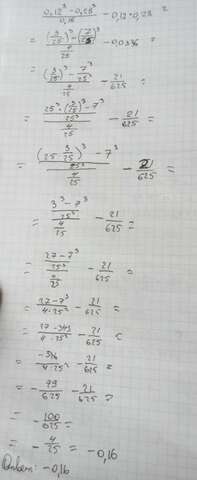 (0,12³ - 0,28³)/0,16 - 0,12·0,28 =
= ((3/25)³ - (7/25)³)/(4/25) - 0,0336 =
= ((3/25)³ - 7³/25³)/(4/25) - 21/625 =
= ((25³·(3/25)³ - 7³)/25³)/(4/25) - 21/625 =
= (((25·3/25)³ - 7³)/25³)/(4/25) - 21/625 =
= ((3³ - 7³)/25³)/(4/25) - 21/625 =
= ((27 - 7³)/25³)/(4/25) - 21/625 =
= (27 - 7³)/(4·25²) - 21/625 =
= (27 - 343)/(4·25²) - 21/625 =
= -316/(4·25²) - 21/625 =
= - 79/625 - 21/625 =
= - 100/625 =
= - 4/25 = -0,16
Ответ: -0,16